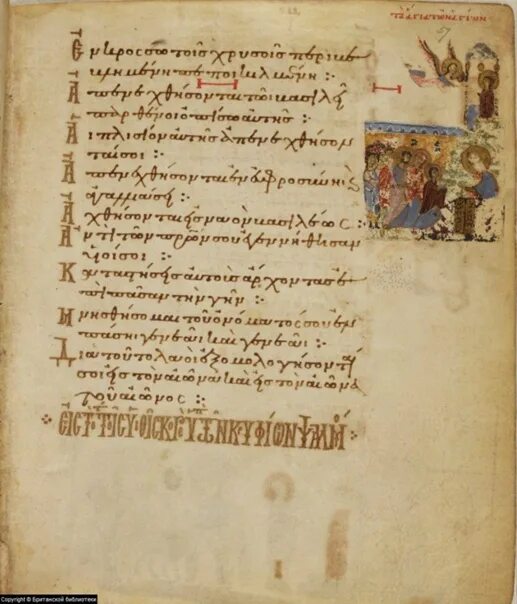 Ἐν κροσσωτοῖς χρυσοῖς περιβε
βλημένη πεποικιλμένη :·
Ἀπενεχθήσονται τῷ βασιλεῖ
παρθένοι ὀπίσω αὐτῆς :·
Αἱ πλησίον αὐτῆς ἀπενεχθήσον
ταί σοι :·
Ἀπενεχθήσονται ἐν εὐφροσύνη κ
ἀγαλλιάσει :·
Ἀχθήσονται εἰς ναὸν βασιλέως :·
Ἀντὶ τῶν πρων σου ἐγεννήθησαν
υἱοί σου :·
Καταστήσεις αὐτοὺς ἄρχοντας ἐ
πὶ πᾶσαν τὴν γῆν :·
Μνησθήσομαι τοῦ ὀνόματός σου ἐν
πάση γενεᾶ καὶ γενεᾶ :·
Διὰ τοῦτο λαοὶ ἐξομολογήσονταί
σοι εἰς τὸν αἰῶνα καὶ εἰς τὸν αἰῶνα
τοῦ αἰῶνος :·
ΚΡΥΦΙΩΝ ΨΑΛΜ
Copyright © Британской библиотеки